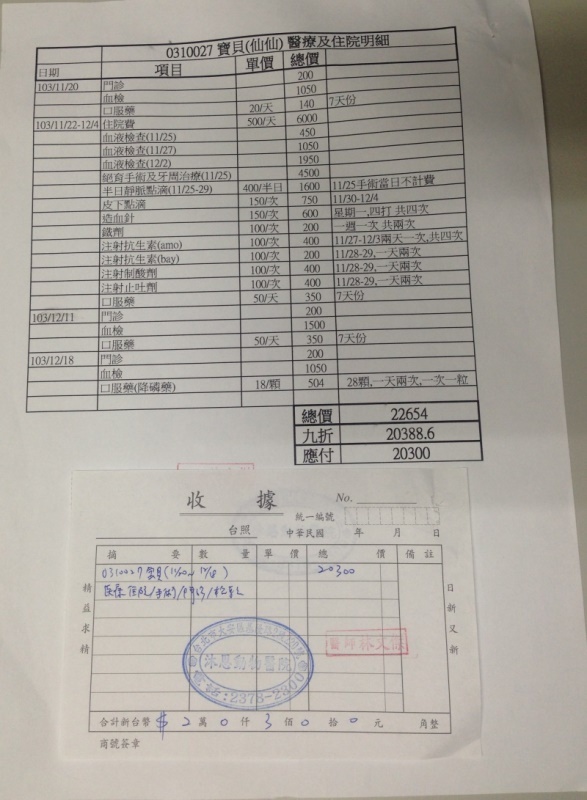 0310027 寶貝(仙仙) 醫療及住院明細
日期 項目 單價 總價
103/11/20 門診 200
血檢 1050
口服藥 20/天 140 7天份
103/11/22-12/4 住院費 500/天 6000
血液檢查(11/25) 450
血液檢查(11/27) 1050
血液檢查(12/2) 1950
絕育手術及牙周治療(11/25) 4500
半日靜脈點滴(11/25-29) 400/半日 1600 11/25手術當日不計費
皮下點滴 150/次 750 11/30-12/4
造血針 150/次 600 星期一,四打 共四次
鐵劑 100/次 200 一週一次 共兩次
注射抗生素(amo) 100/次 400 11/27-12/3兩天一次,共四次
注射抗生素(bay) 100/次 200 11/28-29,一天兩次
注射制酸劑 100/次 400 11/28-29,一天兩次
注射止吐劑 100/次 400 11/28-29,一天兩次
口服藥 50/天 350 7天份
103/12/11 門診 200
血檢 1500
口服藥 50/天 350 7天份
103/12/18 門診 200
血檢 1050
口服藥(降磷藥) 18/顆 504 28顆,一天兩次,一次一粒
總價 22654
九折 20388.6
應付 20300
收據
No.
統一編號
台照 中華民國 年 月 日
摘要 數量 單價 總價 備註
0310027 寶貝 20300
醫療 住院/手術
精益求精
日新又新
沐恩動物醫院
電話:2373-2300
合計新台幣 $ 2 萬 0 仟 3 佰 0 拾 0 元 角整
商號簽章